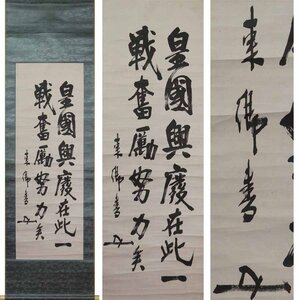 皇國興廢在此一
戰奮勵努力矣
来佛書
皇國興廢在此一
戰奮勵努力矣
来佛書
来佛書